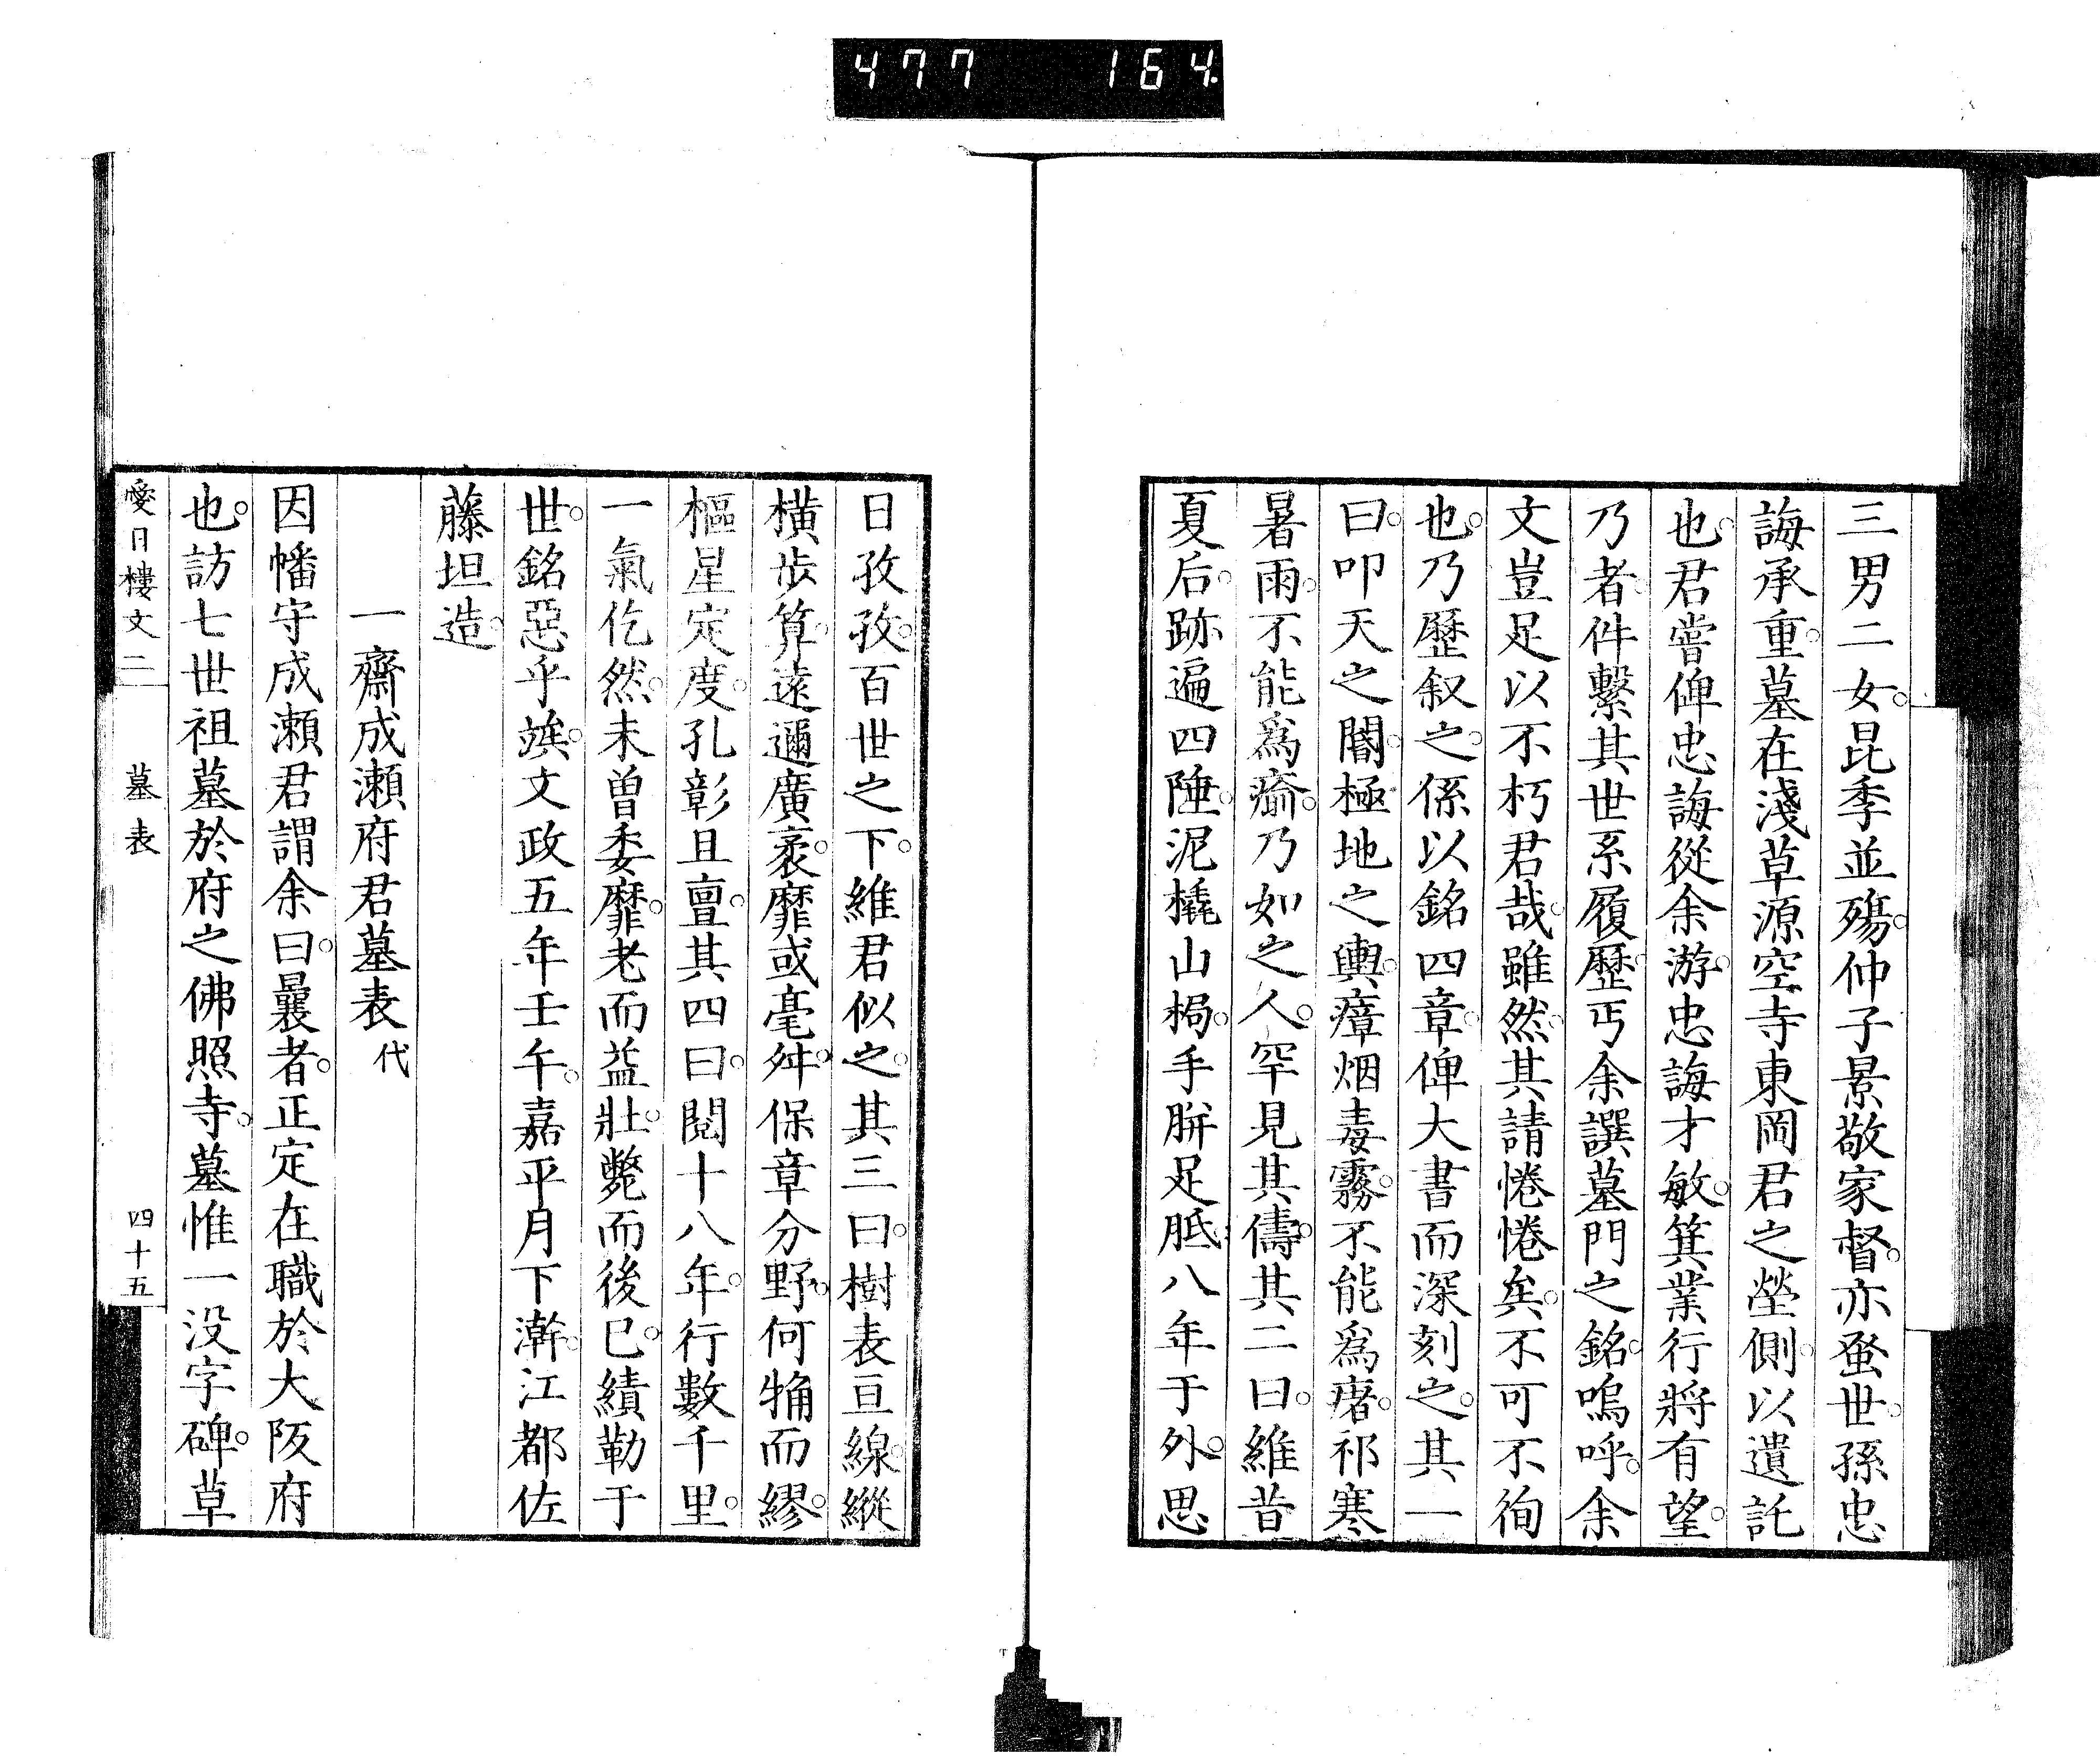 477 164.
三男二女。昆季並殤。仲子景敬家督。亦蚤世。孫忠
誨承重。墓在淺草源空寺東岡君之塋側。以遺託
也。君嘗俾忠誨從余游。忠誨才敏。箕業行將有望。
乃者。件繫其世系履歷。丐余譔墓門之銘。嗚呼。余
文豈足以不朽君哉。雖然。其請惓惓矣。不可不徇
也。乃歷叙之。係以銘四章。俾大書而深刻之。其一
曰。叩天之闇。極地之輿。瘴烟毒霧。不能爲瘏。祁寒
暑雨。不能爲瘉。乃如之人。罕見其儔。其二曰。維昔
夏后。跡遍四陲。泥橇山梮。手胼足胝。八年于外。思
日孜孜。百世之下。維君似之。其三曰。樹表亘線。縱
橫步算。遠邇廣袤。靡或毫舛。保章分野。何觕而繆。
樞星定度。孔彰且亶。其四曰。閱十八年。行數千里。
一氣仡然。未曾委靡。老而益壯。斃而後已。績勒于
世。銘惡乎竢。文政五年壬午。嘉平月下澣。江都佐
藤坦造。
一齋成瀨府君墓表 代
因幡守成瀨君謂余曰。曩者。正定在職於大阪府
也。訪七世祖墓於府之佛照寺。墓惟一没字碑。草
愛日樓文 二 墓表 四十五